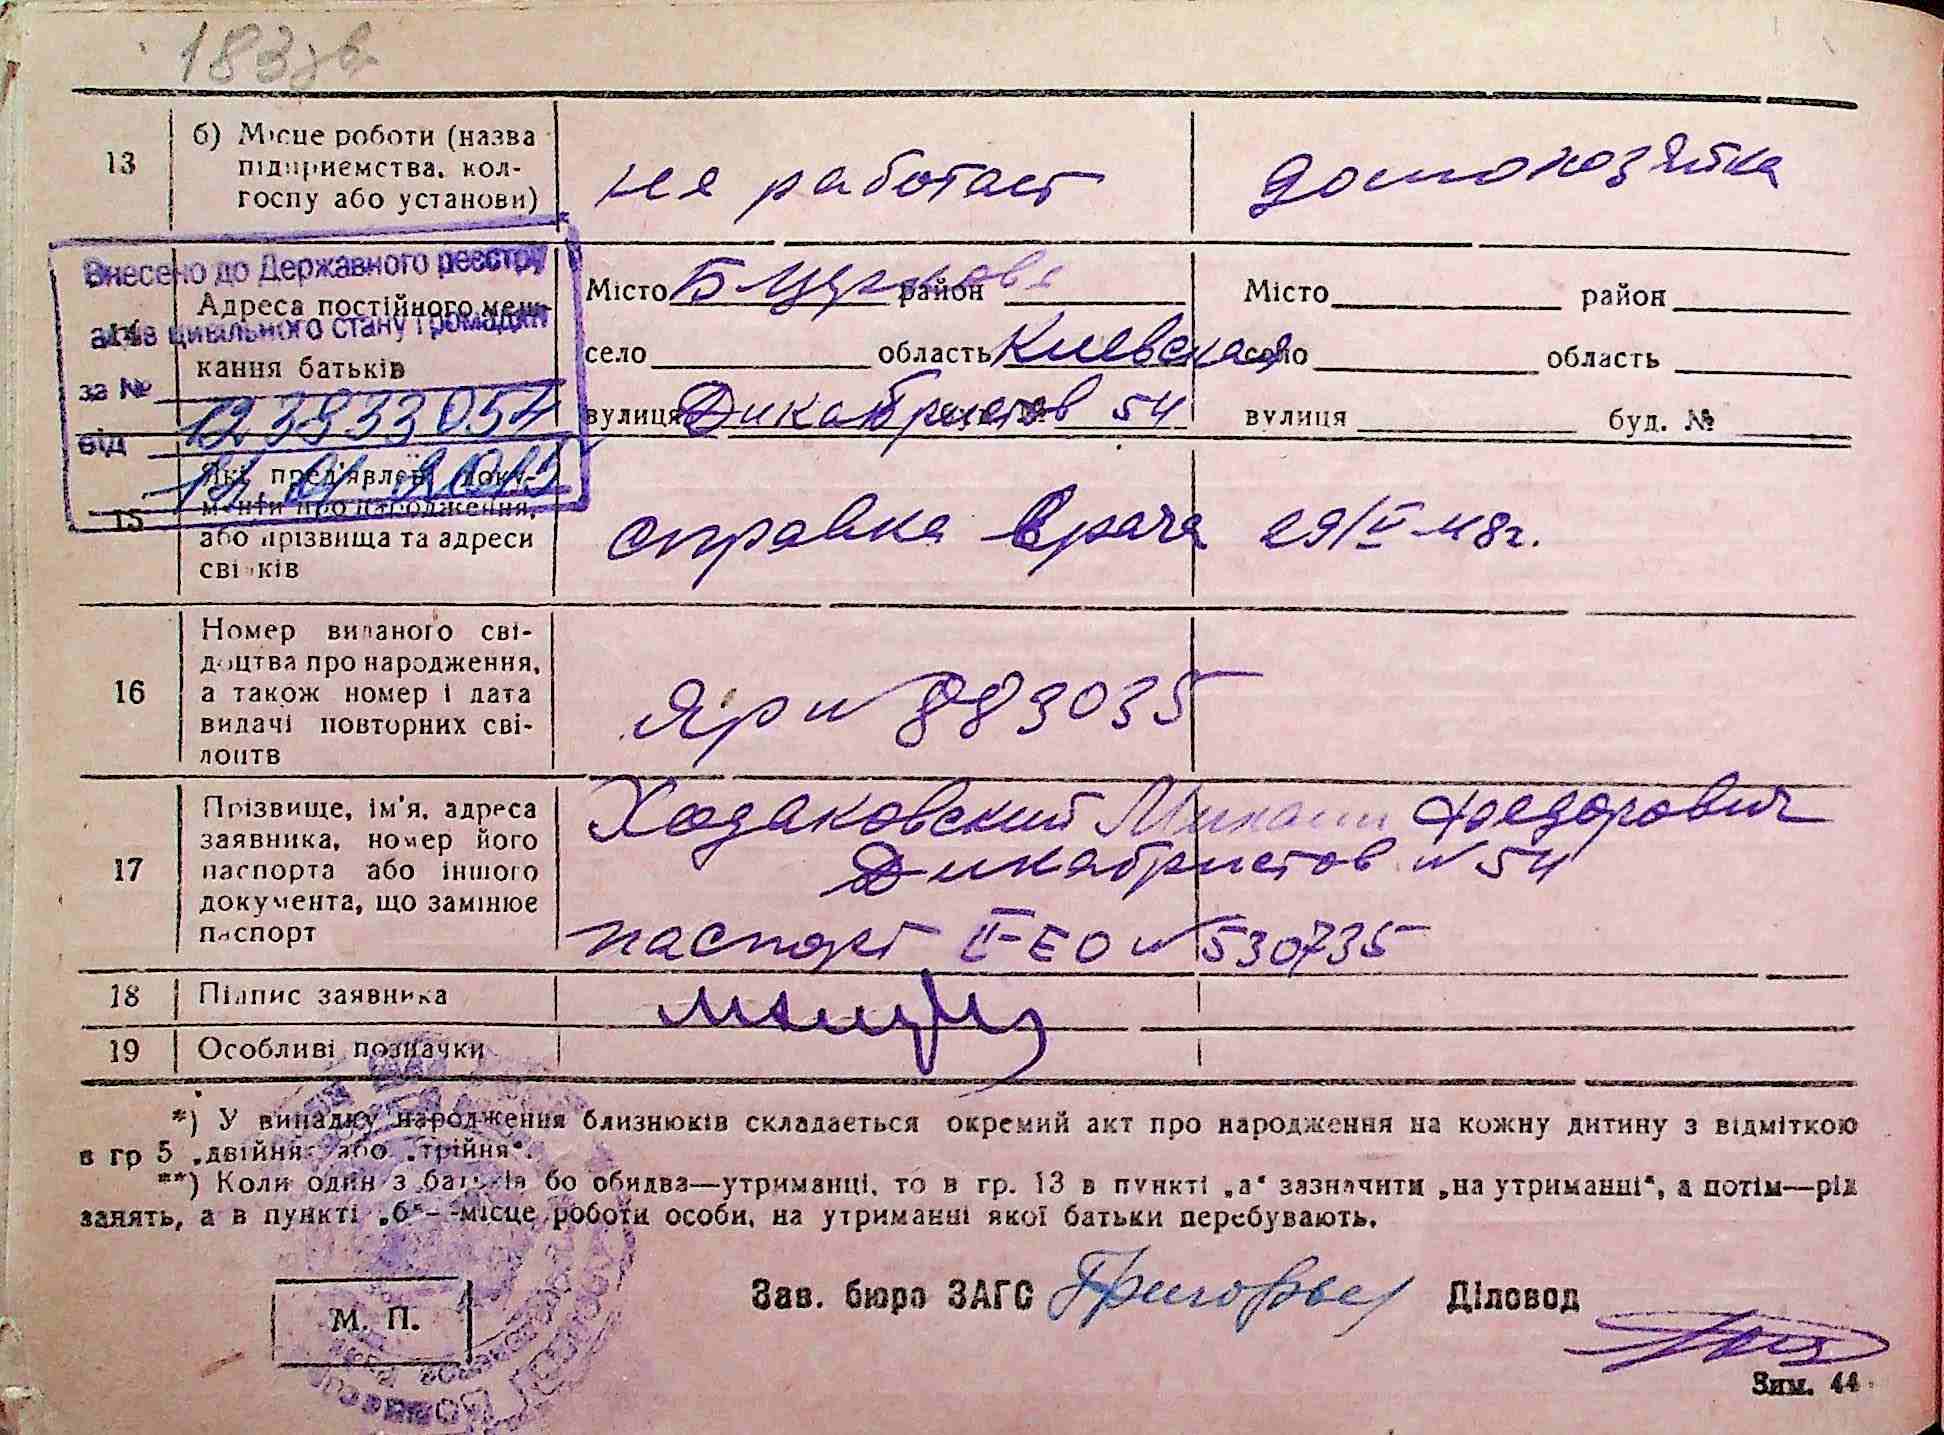 183 зв
13
б) Місце роботи (назва
підприємства, кол-
госпу або установи)
не работает
домохозяйка
Внесено до Державного реєстру
актів цивільного стану громадян
за №
123933054
від
14
Адреса постійного меш-
кання батьків
Місто Б Церковь район
село область Киевская
вулиця Дикабристов 54
Місто район
село область
вулиця буд. №
15
Які пред'явлені доку-
менти про народження,
або прізвища та адреси
свідків
справка врача 29/V 48г.
16
Номер виданого сві-
доцтва про народження,
а також номер і дата
видачі повторних сві-
доцтв
Яр № 883035
17
Прізвище, ім'я, адреса
заявника, номер його
паспорта або іншого
документа, що замінює
паспорт
Ходаковский Михаил Федорович
Дикабристов № 54
паспорт II-ЕО № 530735
18
Підпис заявника
19
Особливі позначки
*) У випадку народження близнюків складається окремий акт про народження на кожну дитину з відміткою
в гр 5 „двійня“ або „трійня“.
**) Коли один з батьків або обидва—утриманці, то в гр. 13 в пункті „а“ зазначити „на утриманні“, а потім—рід
занять, а в пункті „б“—місце роботи особи, на утриманні якої батьки перебувають.
М. П.
Зав. бюро ЗАГС
Діловод
Зим. 44